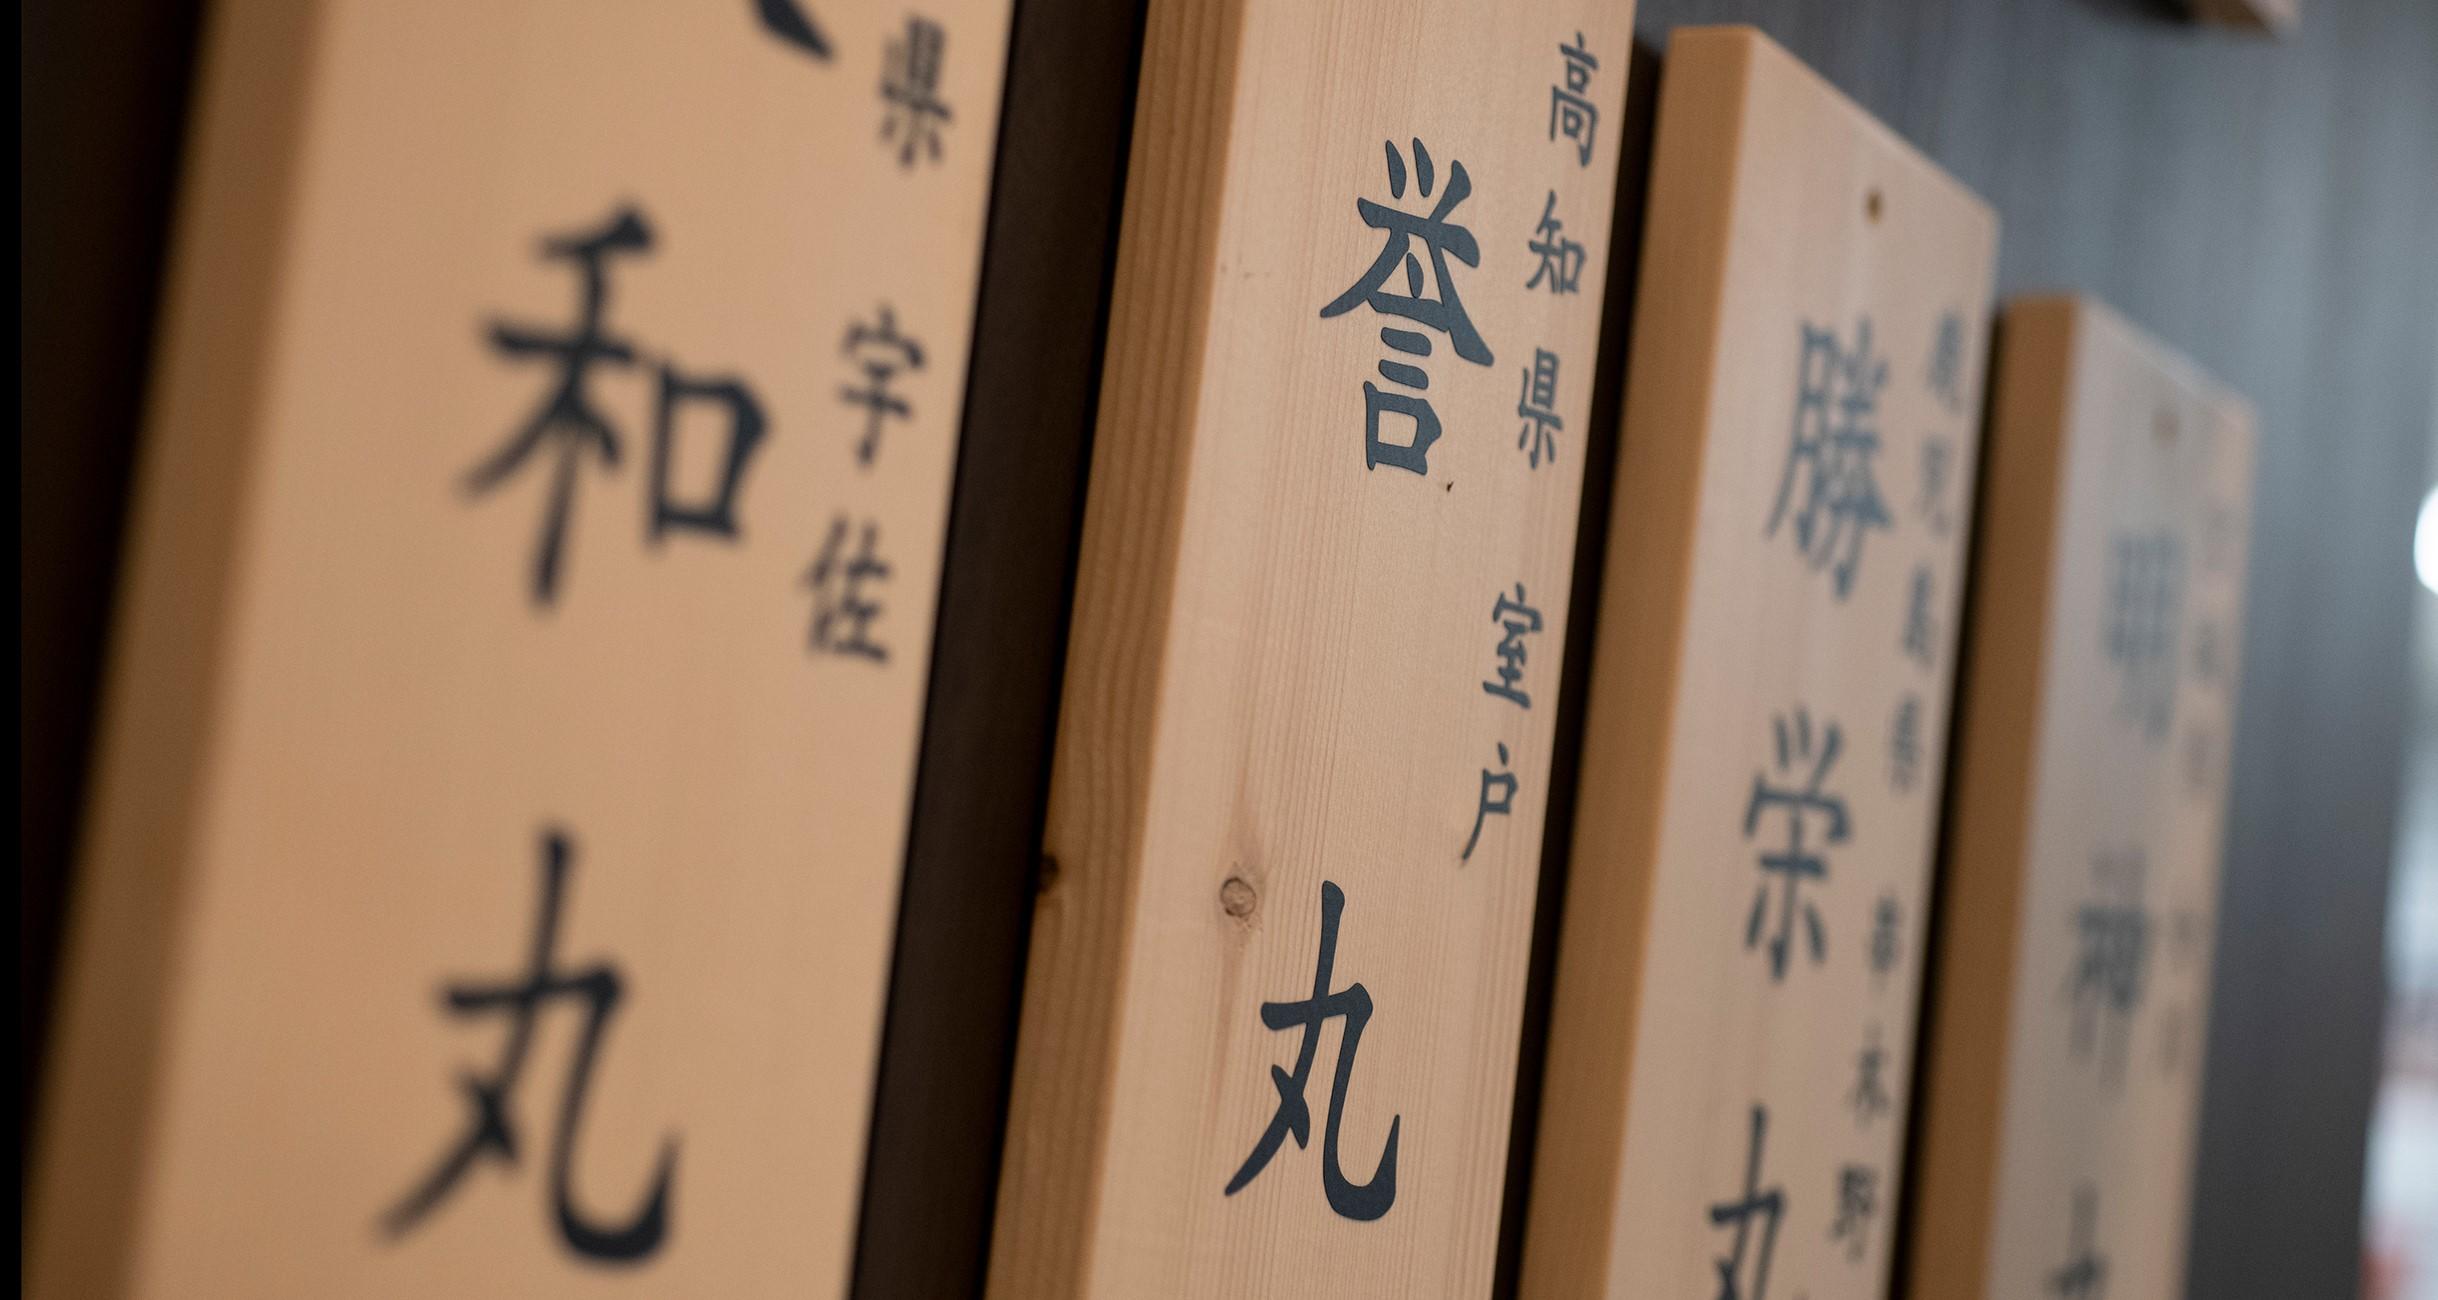 鹿児島県 串木野
勝栄丸
高知県 室戸
誉丸
県 宇佐
和丸